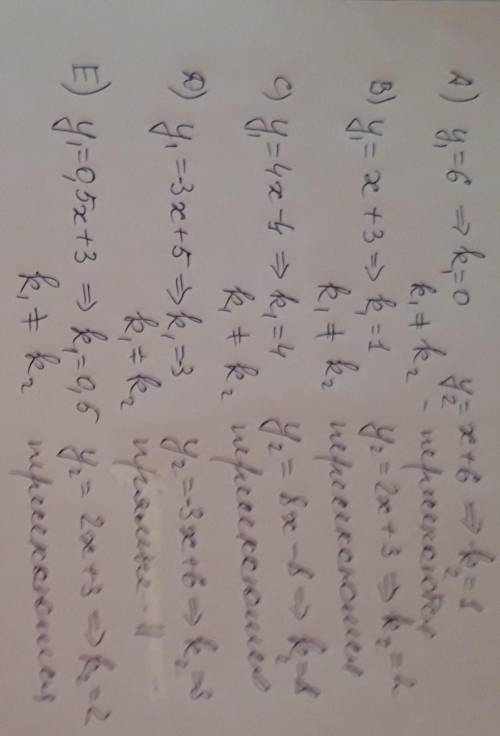 A) y₁=6 ⇒ k₁=0 y₂=x+6 ⇒ k₂=1
k₁≠k₂ - пересекаются
B) y₁=x+3 ⇒ k₁=1 y₂=2x+3 ⇒ k₂=2
k₁≠k₂ пересекаются
C) y₁=4x-4 ⇒ k₁=4 y₂=8x-8 ⇒ k₂=8
k₁≠k₂ пересекаются
D) y₁=-3x+5 ⇒ k₁=-3 y₂=-3x+6 ⇒ k₂=-3
k₁=k₂ прямые ||
E) y₁=0,5x+3 ⇒ k₁=0,5 y₂=2x+3 ⇒ k₂=2
k₁≠k₂ пересекаются